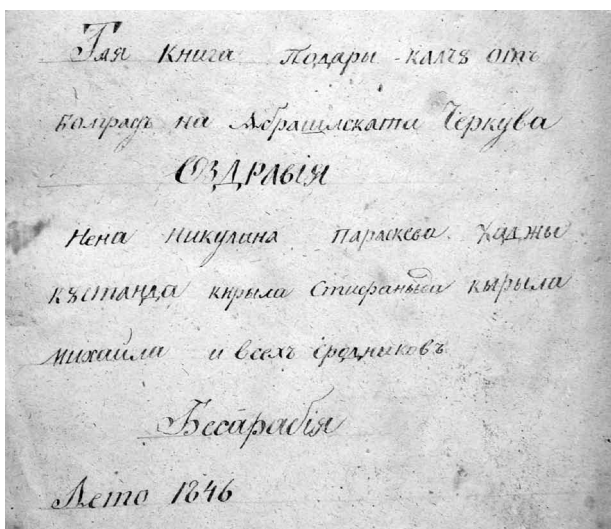 Тая Книга Подары калчȣ отъ
Болградъ на Абрашлската Черкува
ОЗДРАВІЯ
Нена Никулина Параскева Хаджы
кȣстанда кирыла Стифаныда кырыла
михаила и всехъ сродниковъ
Бесарабія
Лето 1846